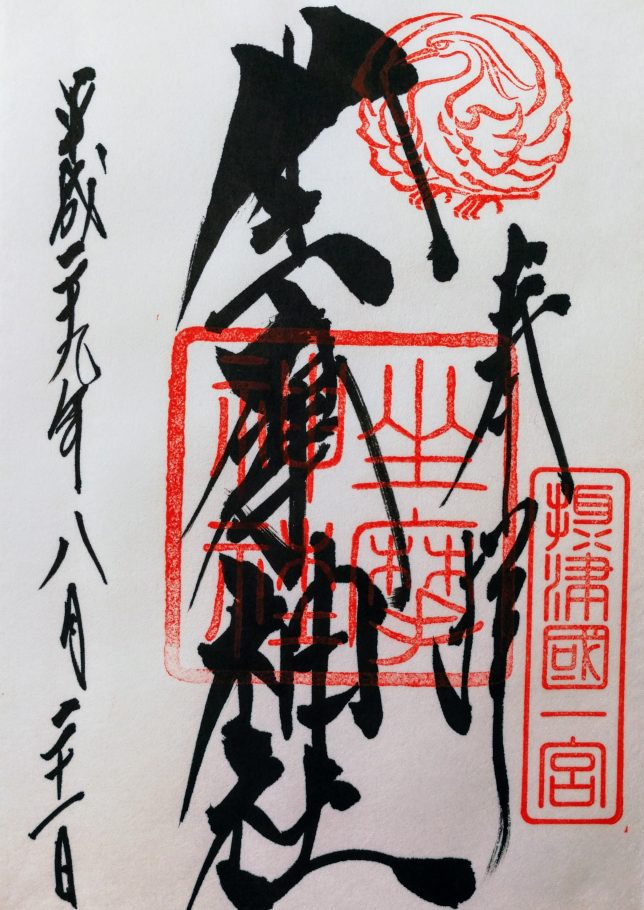 奉拝
摂津國一宮
坐摩神社
坐摩神社
平成二十九年八月二十一日